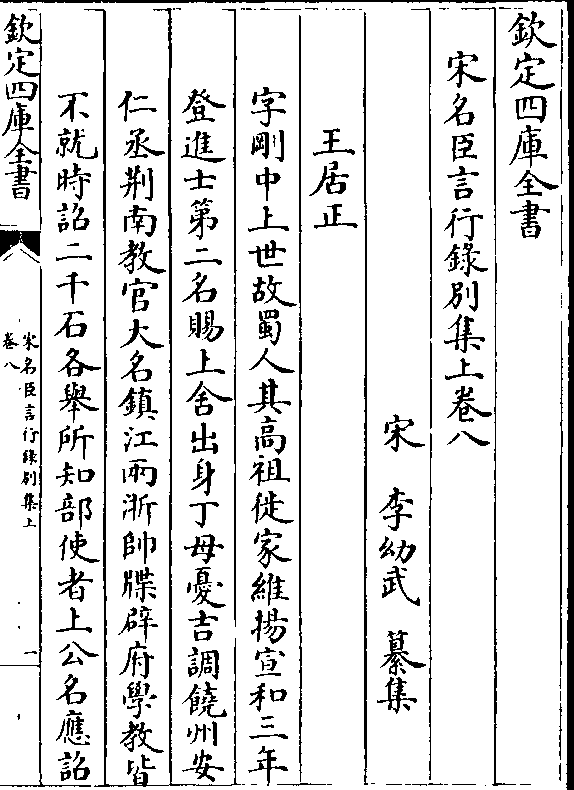 欽定四庫全書
宋名臣言行録別集上卷八
宋　李幼武　纂集
王居正
字剛中上世故蜀人其高祖徙家維揚宣和三年
登進士第二名賜上舍出身丁母憂吉調饒州安
仁丞荆南教官大名鎮江兩浙帥牒辟府學教皆
不就時詔二千石各舉所知部使者上公名應詔
欽定四庫全書
宋名臣言行録別集上
卷八
一